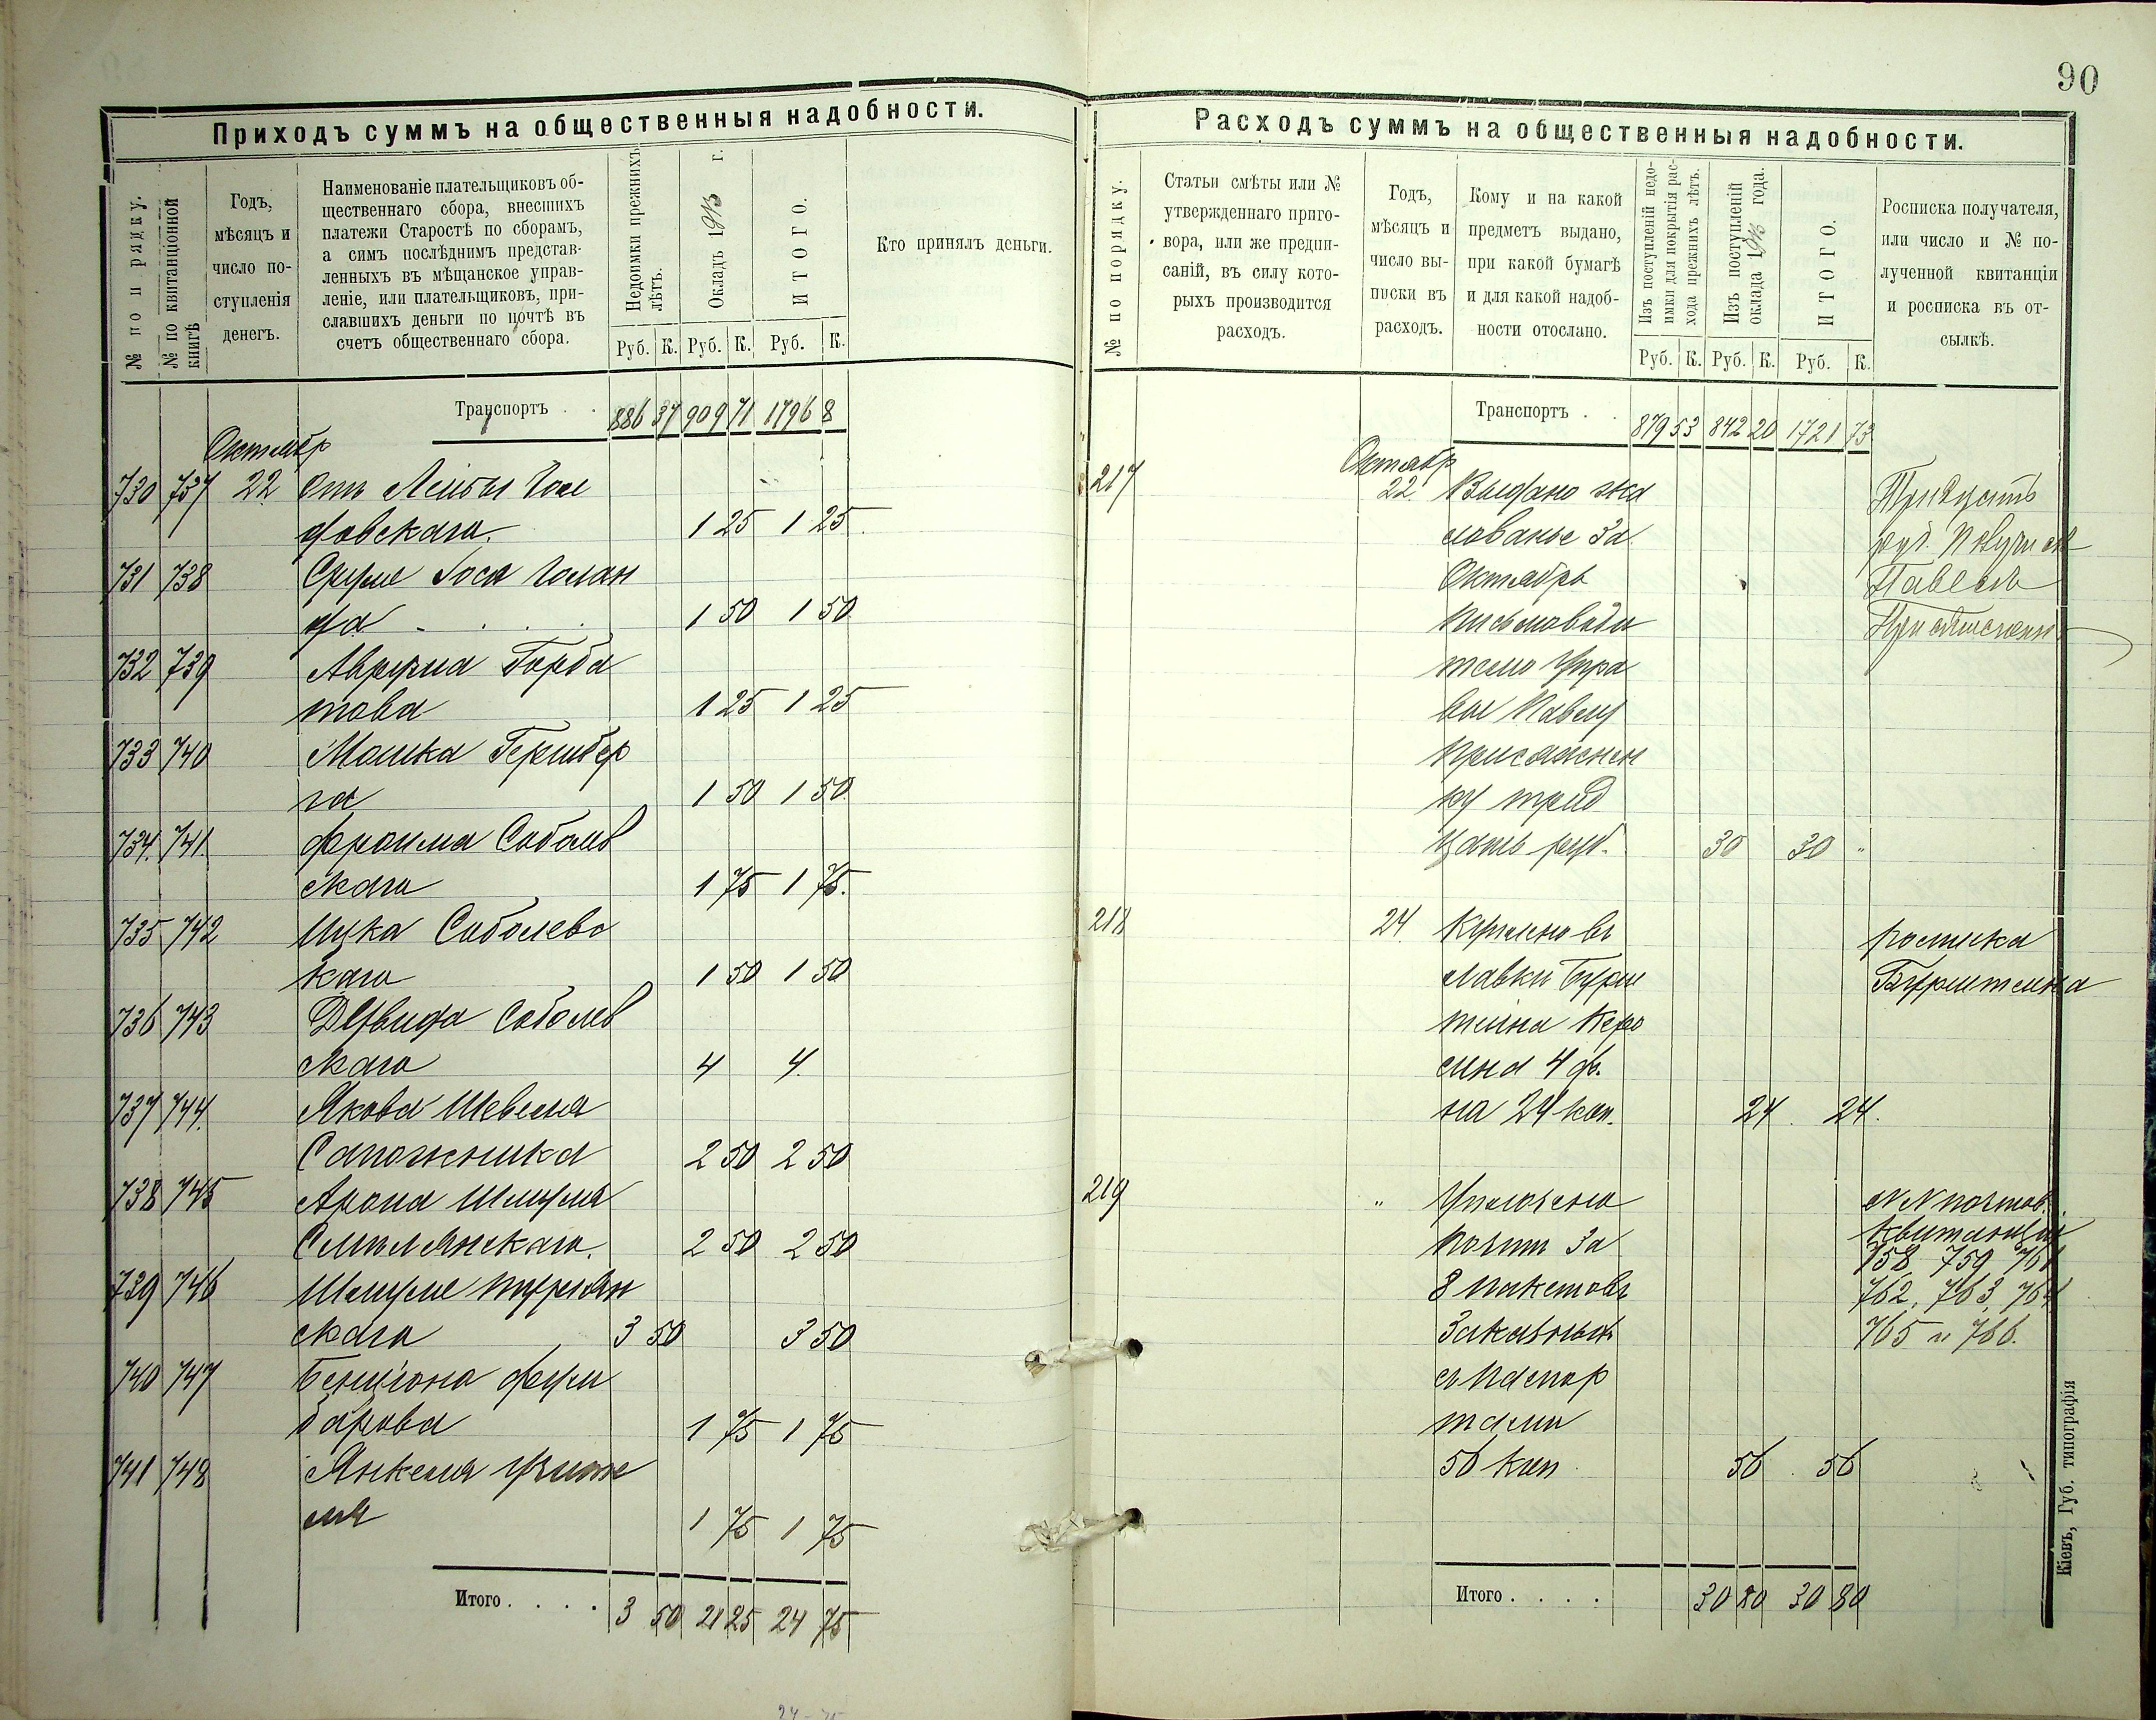 90
Приходъ суммъ на общественныя надобности.
№ по порядку.
№ по квитанціонной книгѣ
Годъ,
мѣсяцъ и
число по-
ступленія
денегъ.
Наименованіе плательщиковъ об-
щественнаго сбора, внесшихъ
платежи Старостѣ по сборамъ,
а симъ послѣднимъ представ-
ленныхъ въ мѣщанское управ-
леніе, или плательщиковъ, при-
славшихъ деньги по почтѣ въ
счетъ общественнаго сбора.
Недоимки прежнихъ
лѣтъ.
Окладъ 1913 г.
ИТОГО.
Кто принялъ деньги.
Руб. К. Руб. К. Руб. К.
Транспортъ . . 886 37 909 71 1796 8
Октябр
730 737 22 Отъ Лейбы Гол
довскаго. 1 25 1 25
731 738 Сруля Іося Голан
да . . . . 1 50 1 50
732 739 Аврума Горба
това 1 25 1 25
733 740 Мошка Гершбер
га 1 50 1 50
734. 741. Фроима Соболев
скаго 1 75 1 75.
735 742 Ицка Соболевс
каго 1 50 1 50
736 743 Давида Соболев
скаго 4 4.
737 744. Якова Шевеля
Сапожника 2 50 2 50
738 745 Арона Шмуля
Смилянскаго. 2 50 2 50
739 746 Шмуля Туриян
скаго 3 50 3 50
740 747 Бенціона
барова 1 75 1 75
741 748 Янкеля
ля 1 75 1 75
Итого . . . . 3 50 21 25 24 75
24-75
Расходъ суммъ на общественныя надобности.
№ по порядку.
Статьи смѣты или №
утвержденнаго приго-
вора, или же предпи-
саній, въ силу кото-
рыхъ производится
расходъ.
Годъ,
мѣсяцъ и
число вы-
писки въ
расходъ.
Кому и на какой
предметъ выдано,
при какой бумагѣ
и для какой надоб-
ности отослано.
Изъ поступленій недо-
имки для покрытія рас-
хода прежнихъ лѣтъ.
Изъ поступленій
оклада 1913 года.
ИТОГО.
Росписка получателя,
или число и № по-
лученной квитанціи
и росписка въ от-
сылкѣ.
Руб. К. Руб. К. Руб. К.
Транспортъ . . 879 53 842 20 1721 73
Октябр
217 22. Выдано жа
лованье за
Октябрь
письмоводи
телю Упра
вы Павлу
Присяжнен
ку трид
цать руб. 30 30 "
Тридцать
руб. Получилъ
Павелъ
Присяжненко
218 24. Куплено въ
лавки Бурш
тейна керо
сина 4 ф.
на 24 коп. 24. 24.
росписка
Бурштейна
219 " Уплочено
почти за
8 пакетовъ
Заказных
съ паспор
тами
56 коп. 56. 56
№№ почтов.
квитанціи
758 759 761
762, 763, 764
765 и 766.
Итого . . . . 30 80 30 80
Кіевъ, Губ. типографія